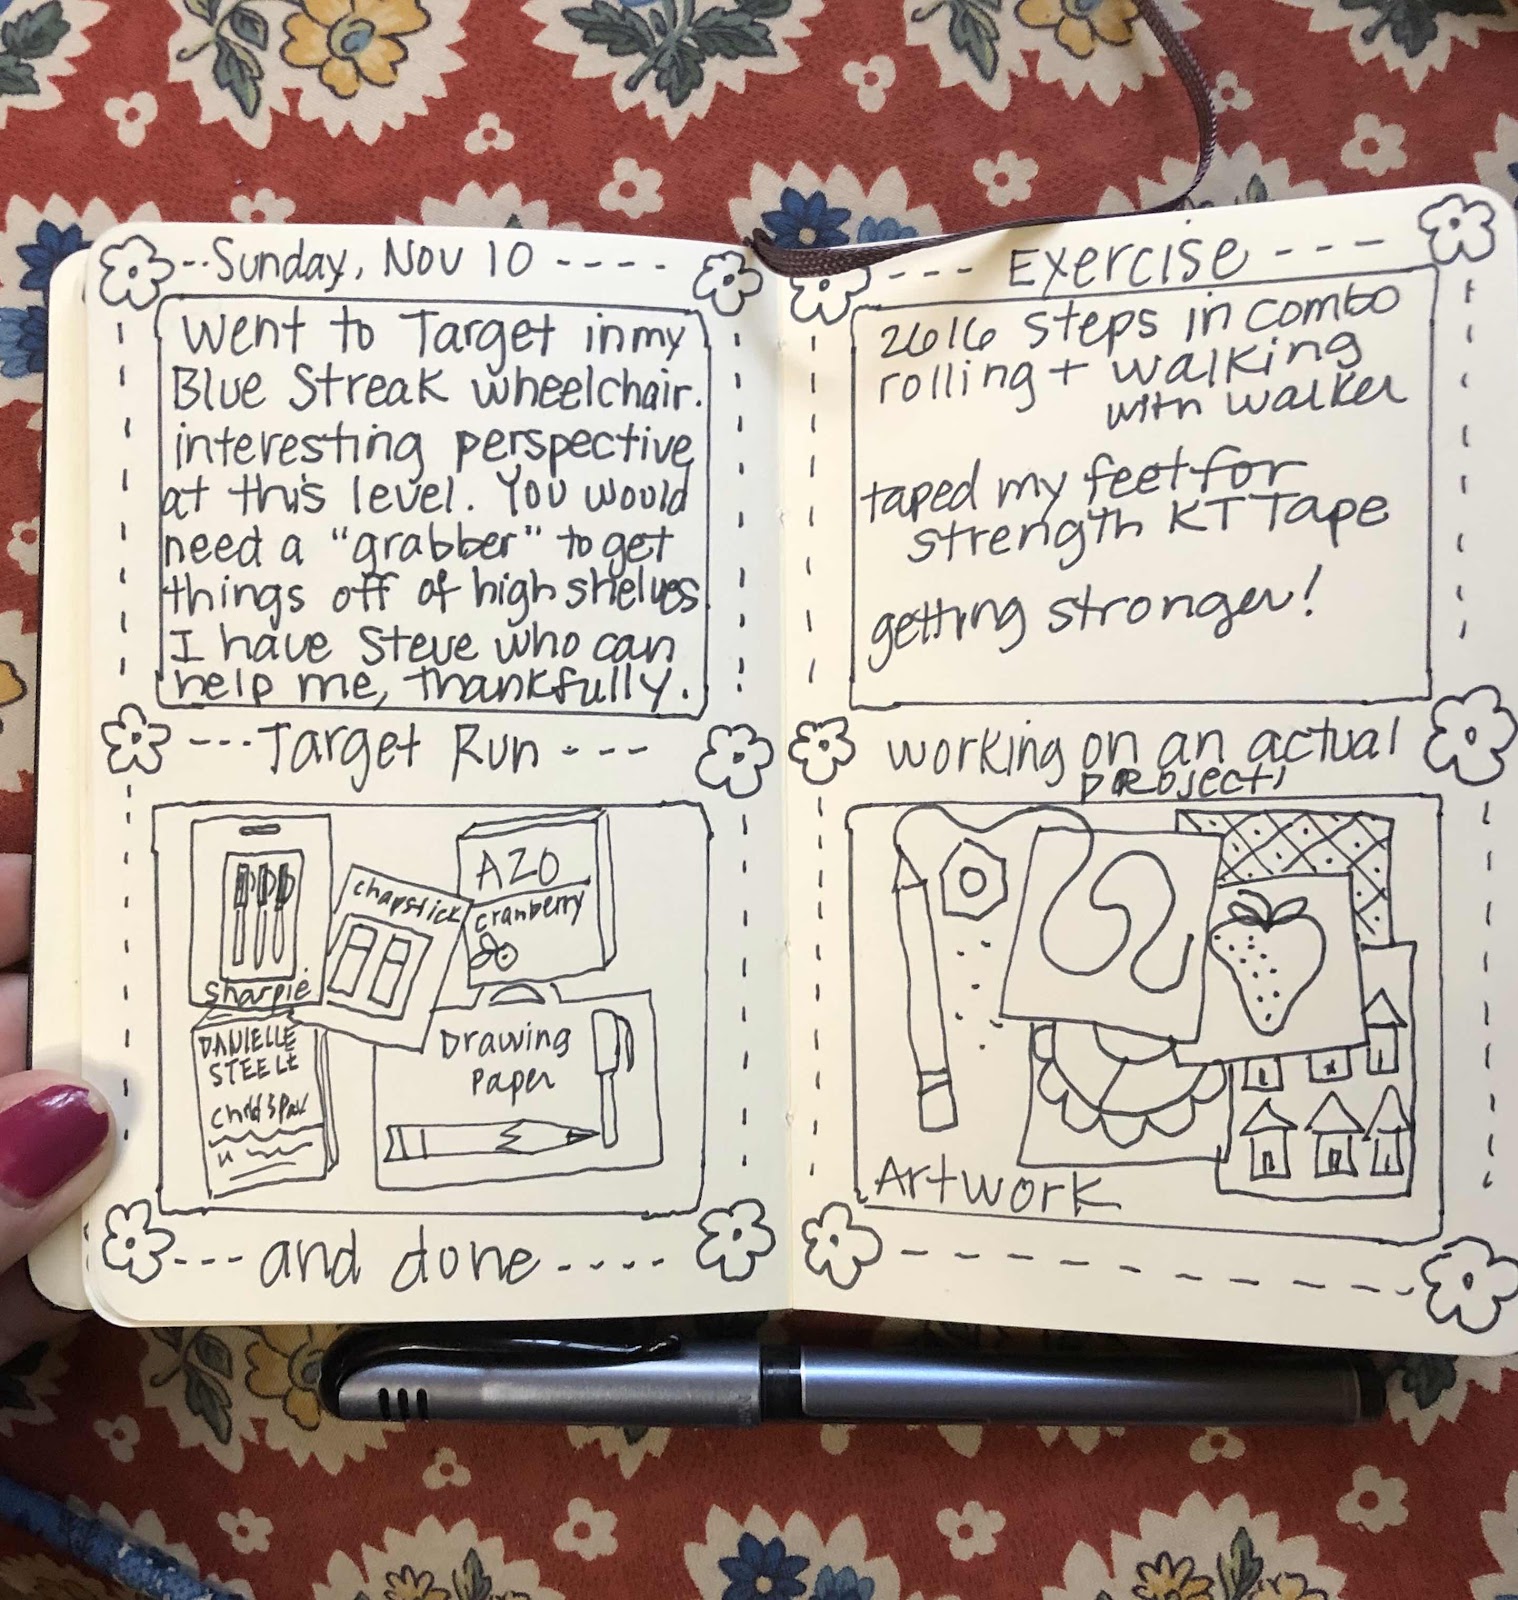 Sunday, Nov 10
Went to Target in my
Blue Streak wheelchair.
interesting perspective
at this level. You would
need a "grabber" to get
things off of high shelves
I have Steve who can
help me, thankfully.
Target Run
sharpie
chapstick
AZO
cranberry
DANIELLE
STEELE
Drawing
Paper
and done
Exercise
2616 steps in combo
rolling + walking
with walker
taped my feet for
strength KT Tape
getting stronger!
working on an actual
project
Artwork